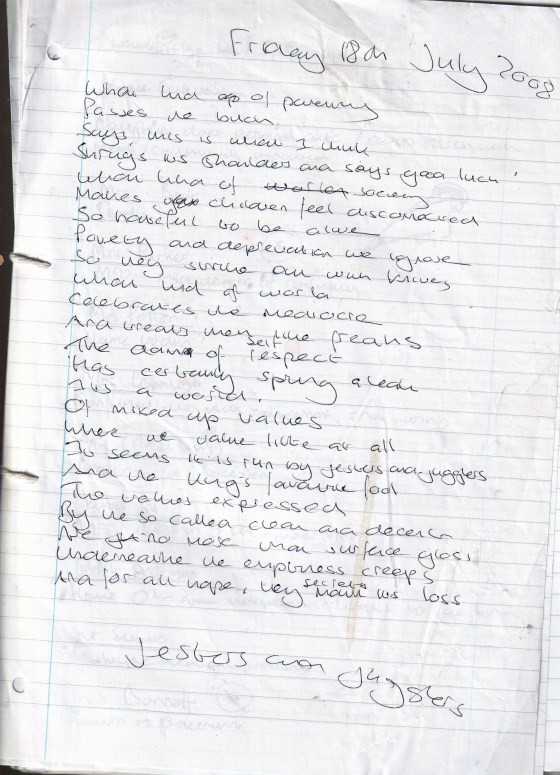 Friday 18th July 2008
What kind of parenting
Passes the buck
Says this is what I think
Shrugs its shoulders and says good luck
What kind of society
Makes children feel disconnected
So hateful to be alive
Poverty and deprevation we ignore
So they strike out with knives
What kind of world
Celebrates the mediocre
And treats them like freaks
The dam of self respect
Has certainly sprung a leak
Its a world.
Of mixed up values
Where we value little at all
It seems it is run by jesters and jugglers
And the King's favourite fool
The values expressed
By the so called clean and decent
Are no more than surface gloss
Underneathe the emptiness creeps
And for all hope, they secretly its loss
Jesters and jugglers